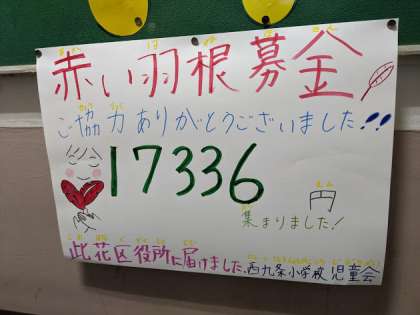 赤い羽根募金
ご協力ありがとうございました!!
17336円
集まりました!
此花区役所に届けました。西九条小学校 児童会